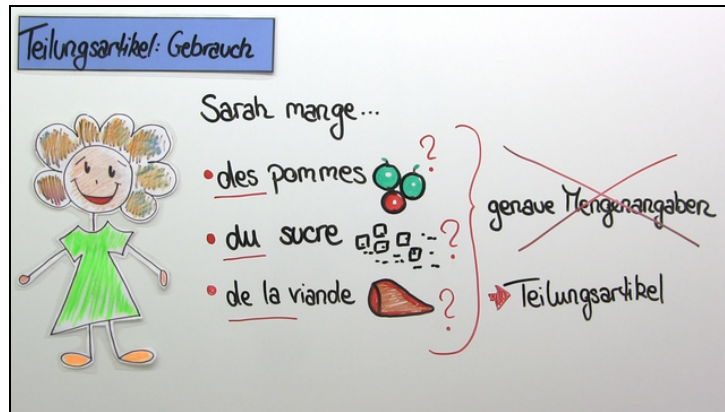 Teilungsartikel: Gebrauch
Sarah mange...
• des pommes ?
• du sucre ?
• de la viande ?
genaue Mengenangaben
Teilungsartikel